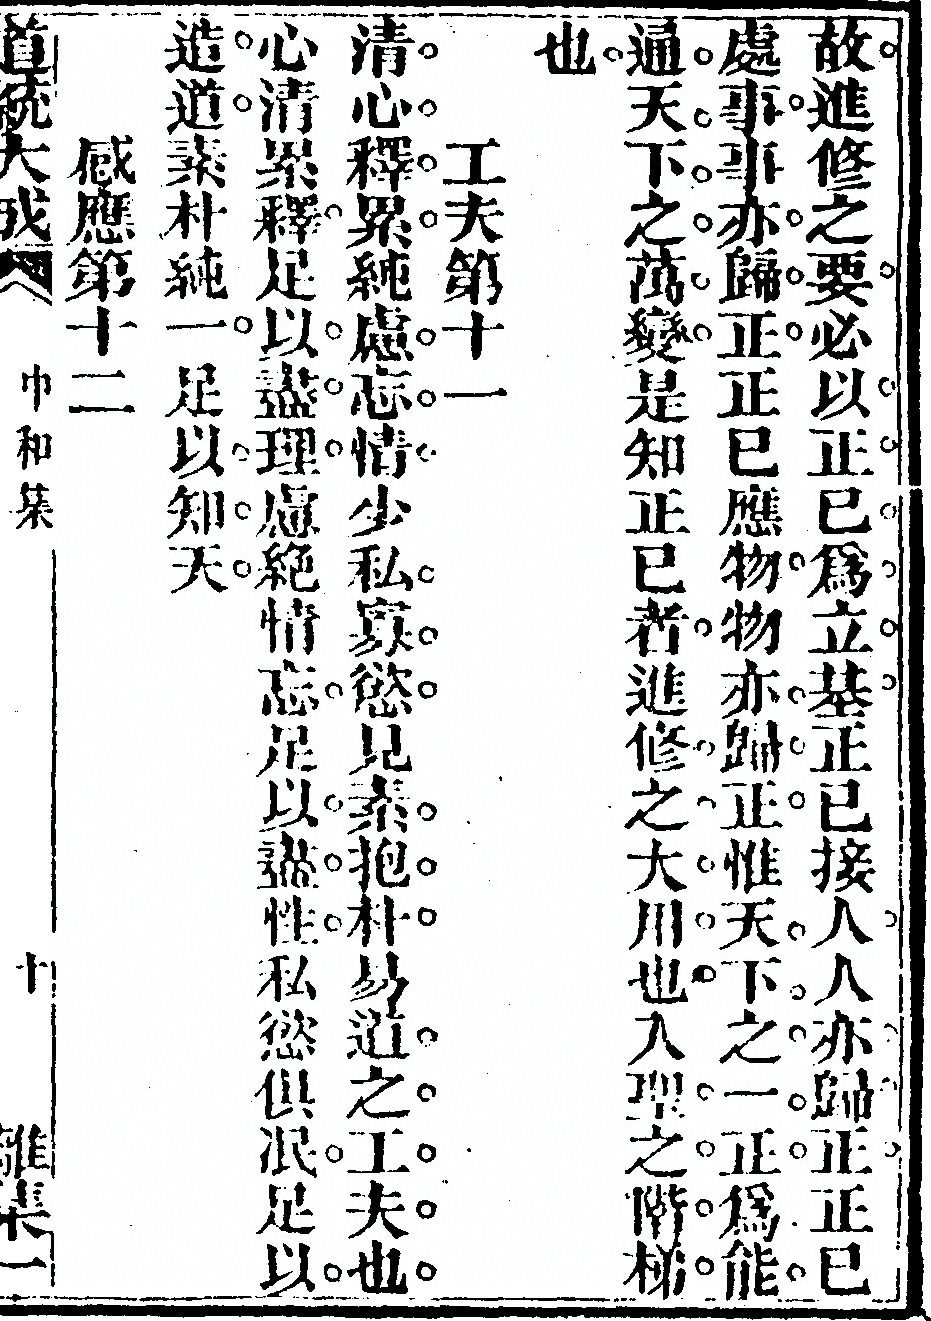 故進修之要必以正已爲立基正已接人人亦歸正正已
處事事亦歸正正已應物物亦歸正惟天下之一正爲能
通天下之萬變是知正已者進修之大用也入聖之階梯
也
工夫第十一
清心釋累絶慮忘情少私寡慾見素抱朴易道之工夫也
心清累釋足以盡理慮絶情忘足以盡性私慾俱泯足以
造道素朴純一足以知天
感應第十二
道統大成 中和集 十 雜集一